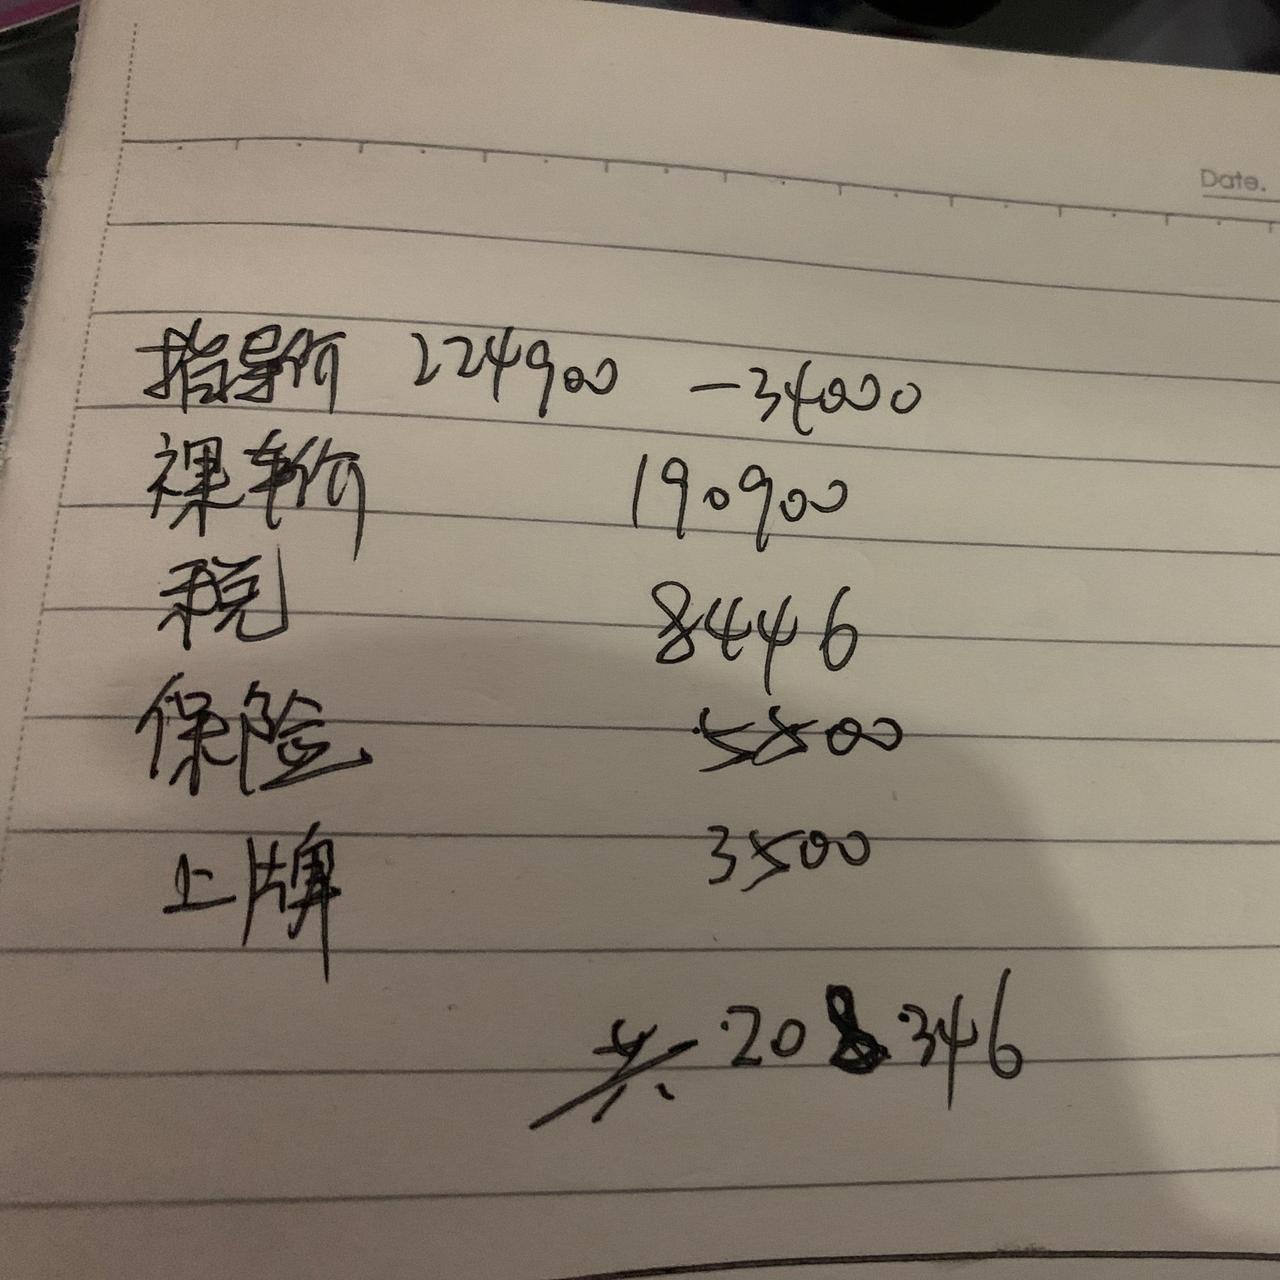 Date.
指导价 224900 -34000
裸车价 190900
税 8446
保险 5500
上牌 3500
共 208346